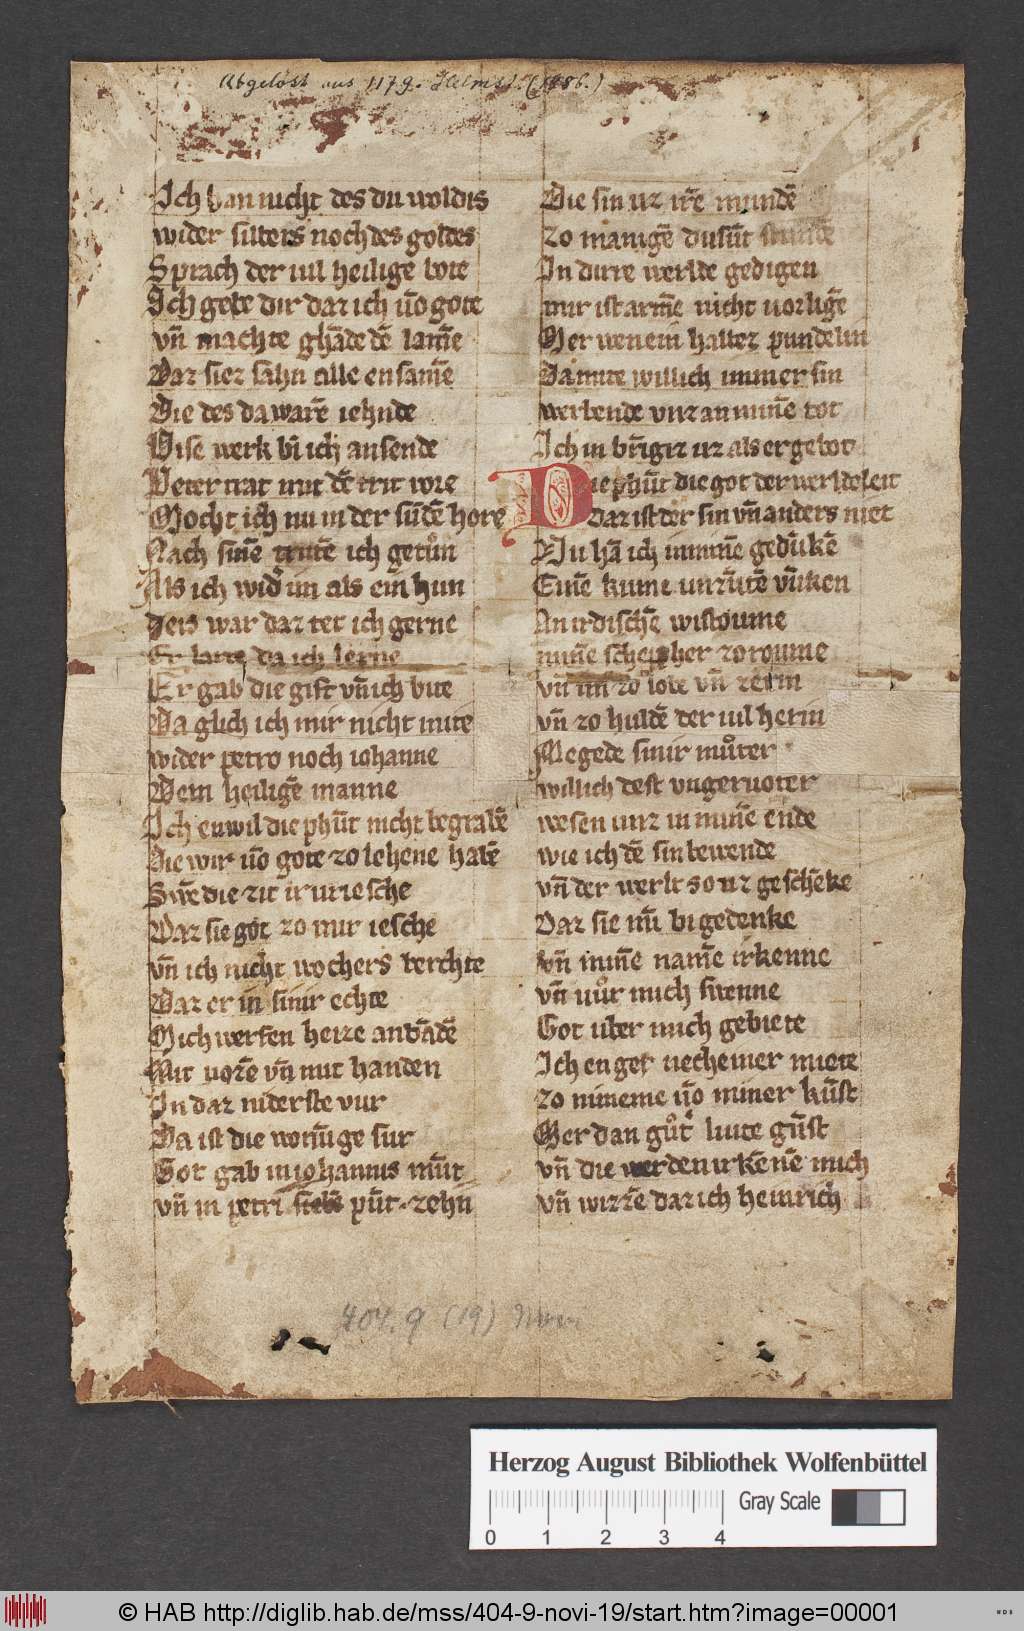 Abgelöst aus 1179. Helmst. (1886.)
Ich han nicht des du woldis
wider silbers noch des goldes
Sprach der uil heilige bote
Ich gebe dir daz ich vō gote
vn̄ machte ghāde dē lam̄e
Daz siez sahn alle ensam̄e
Die des da warē iehnde
Dise werk bī ich ansende
Peter trat mit dē trit vore
Mocht ich nu in der sūdē hore
Nach sinē tritē ich getůn
Als ich wid im als ein hun
Jeis war daz tet ich gerne
Er larte da ich lerne
Er gab die gift vn̄ ich bite
Da glich ich mir nicht mite
wider petro noch iohanne
Dem heiligē manne
Ich enwil die phūt nicht begrabē
Die wir vō gote zo lehene habē
Swē die zit ir uriesche
Daz sie got zo mir iesche
vn̄ ich nicht wochers berchte
Daz er in sinir echte
Mich werfen heize anbādē
Mit vozē vn̄ mit handen
In daz niderste vur
Da ist die wonūge sur
Got gab in iohannis mūt
vn̄ in petri sīebē pūt zehn
Die sin uz irē mundē
zo manigē dusūt stundē
In dirre werlde gedigen
mir ist armē nicht vorligē
Mer wen ein halbez pundelin
Da mite willich immer sin
werbende unz an minē tot
Ich in brīgiz uz als er gebot
Die phūt die got der werlde leit
Daz ist der sin vn̄ anders niet
Nu hā ich in minē gedūkē
Einē kume unzūtē vūken
An irdischē wistoume
minē schepher zo roume
vn̄ im zo lobe vn̄ zerin
vn̄ zo huldē der uil herin
Megede sinir můter
willich dest ungeruoter
wesen unz in minē ende
wie ich dē sin bewende
vn̄ der werlt so uz geschēke
Daz sie mī bi gedenke
vn̄ minē namē irkenne
vn̄ vůr mich swenne
Got uber mich gebiete
Ich en ger necheiner miete
zo nimeme vō miner kūst
Mer dan gůt luite gūst
vn̄ die werden irkēnē mich
vn̄ wizzē daz ich heinrich
404.9 (19) Novi
Herzog August Bibliothek Wolfenbüttel
0 1 2 3 4
Gray Scale
© HAB http://diglib.hab.de/mss/404-9-novi-19/start.htm?image=00001
WDB